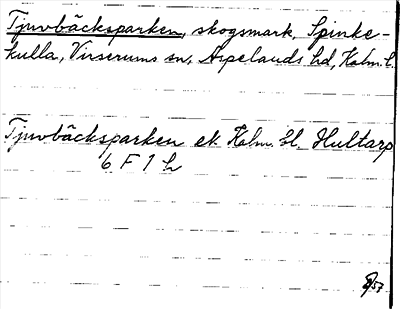 Tjuvbäcksparken, skogsmark, Spinke-
kulla, Virserums sn, Aspelands hd, Kalm. l.
Tjuvbäcksparken ek. Kalm. l. Hultarp
6 F 1 h